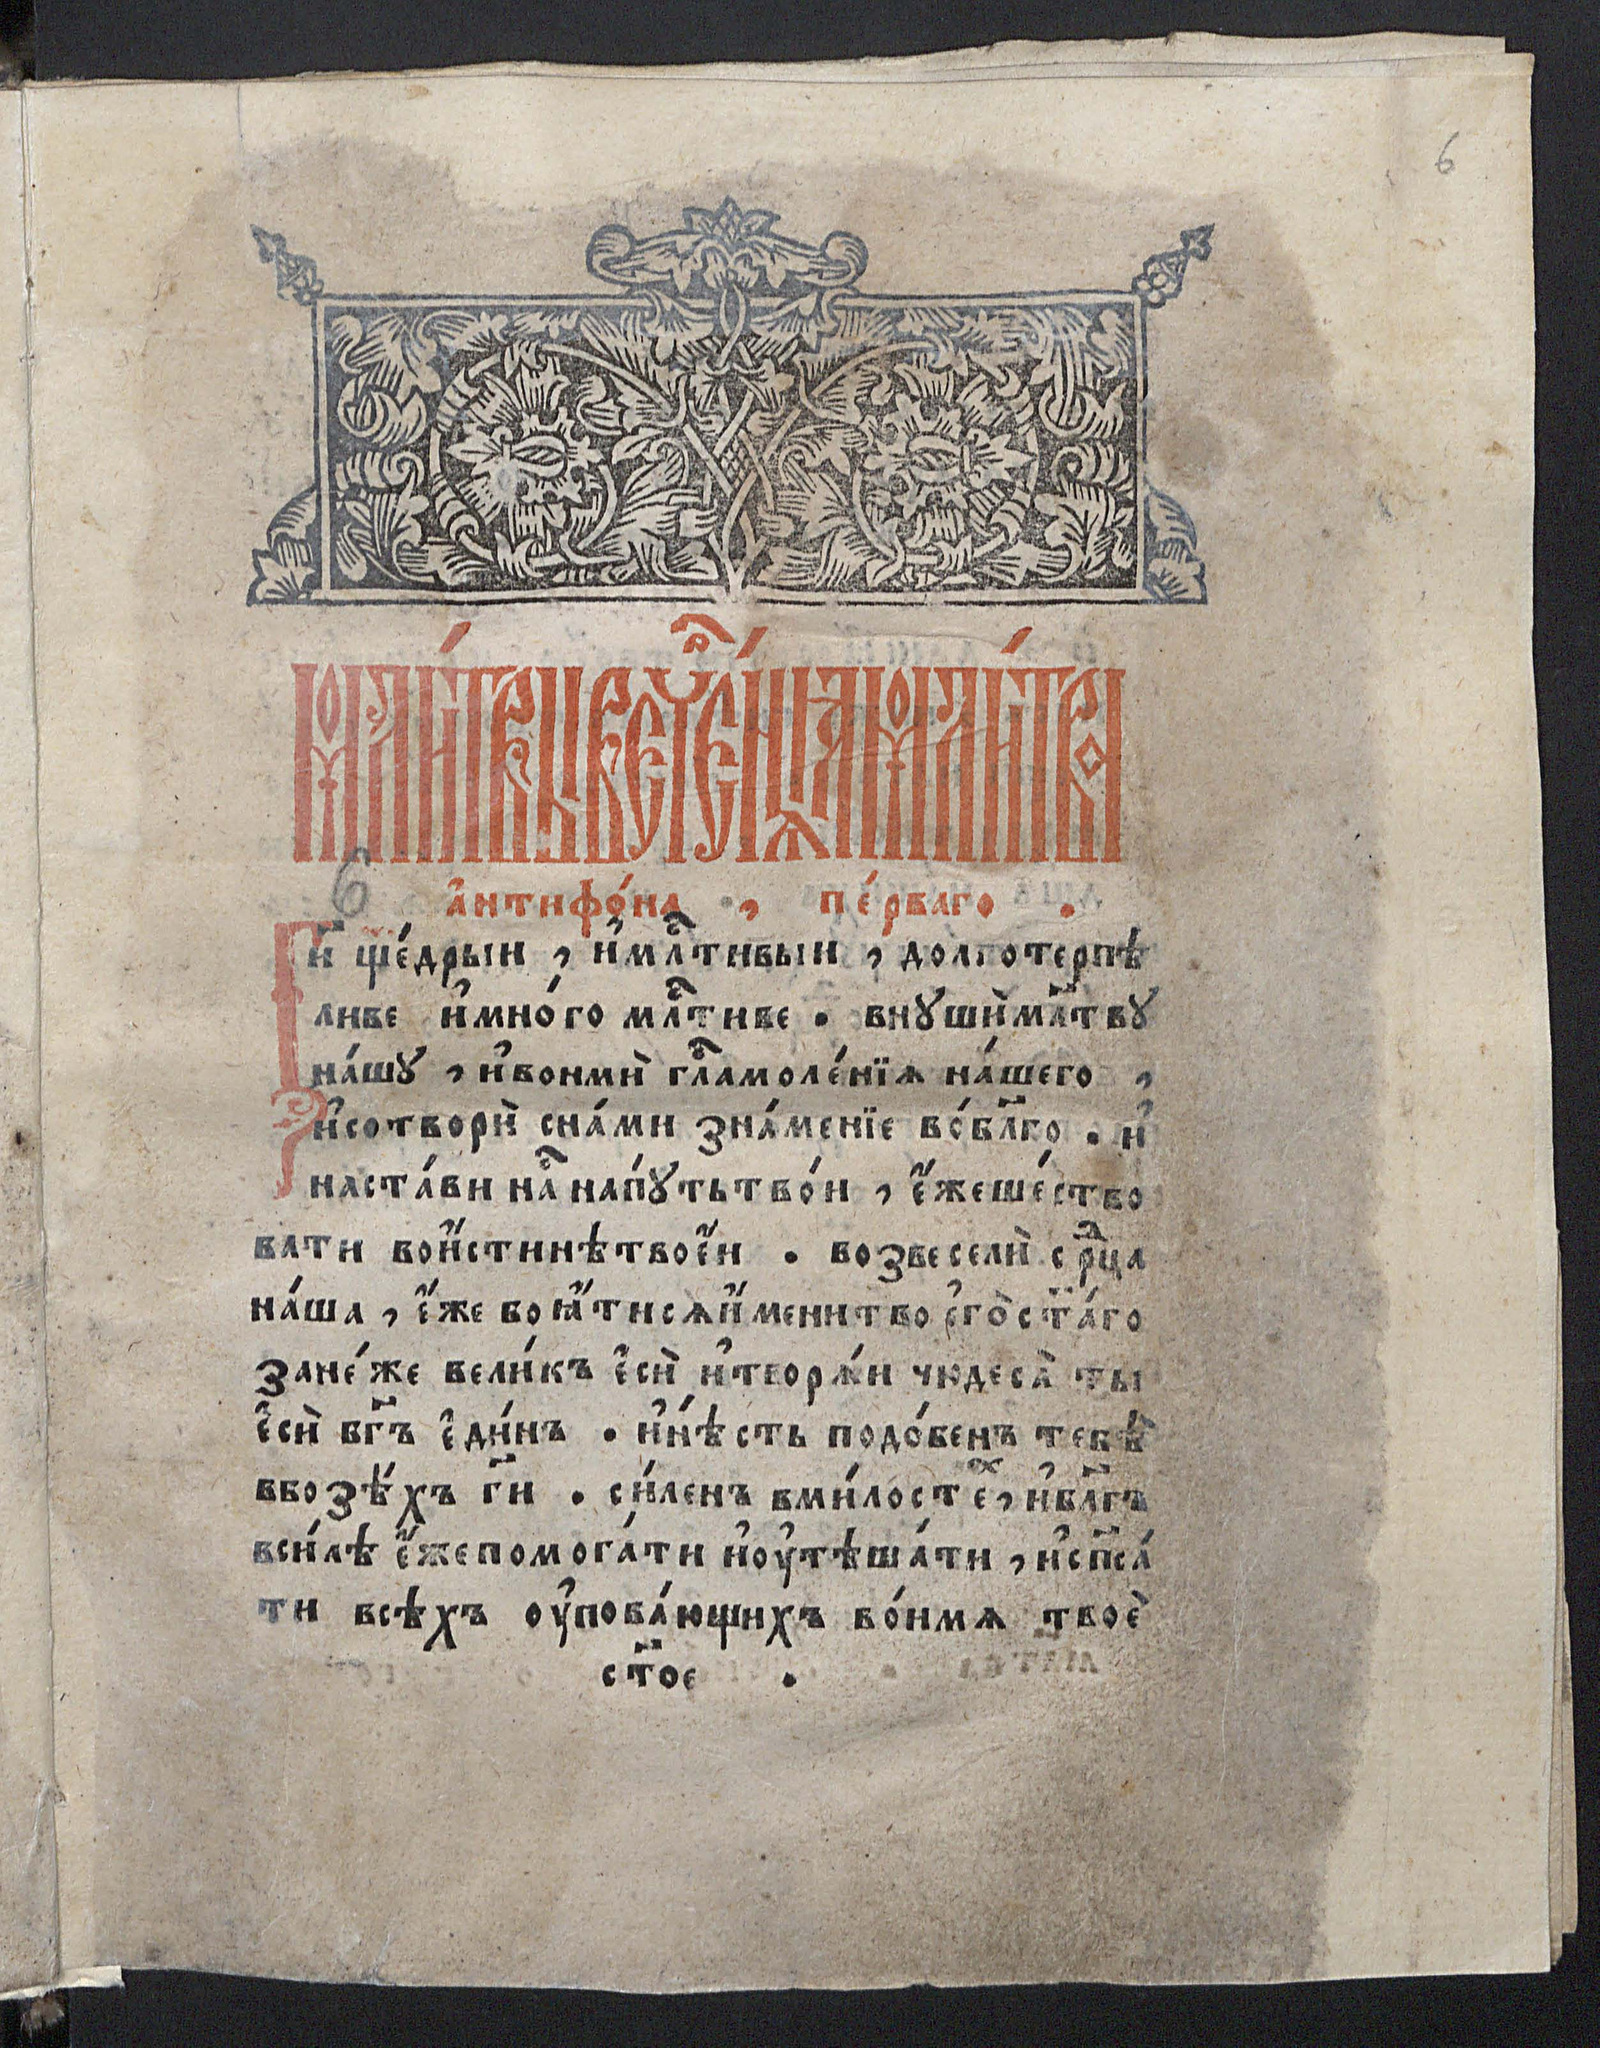 6
мл҃и́твы вече́рнїѧ мл҃и́тва
6
а҆нтифо́на , пе́рваго .
Гⷭ҇и ще́дрыи , и҆млⷭ҇тивыи , долготерпѣ́
ливе и҆мно́го млⷭ҇тиве . внꙋшѝмл҃твꙋ
на́шꙋ , и҆вонмѝ глⷭ҇амоле́нїѧ на́шего ,
и҆сотворѝ сна́ми зна́менїе во́бл҃го . и҆
наста́ви нⷭ҇а напꙋ́тьтво́и , е҆́жеше́ство
вати вои҆́стинѣтвое҆́и . возвеселѝ срⷣца
на́ша , е҆́же боꙗ҆́тисѧи҆́менитвоегѡ̀ст҃а́го
зане́же вели́къ е҆сѝ и҆творѧ́и чюдеса̀ ты
е҆сѝ бг҃ъ е҆ди́нъ . и҆нѣ́сть подо́бенъ тебѣ̀
вбозѣ́хъ гⷭ҇и . си́ленъ вми́лостеⷯ , и҆бл҃гъ
вси́лѣ е҆́жепомога́ти и҆оу҆тѣша́ти , и҆сп҃са́
ти всѣхъ оу҆пова́ющихъ во́имѧ твоѐ
ст҃ое .